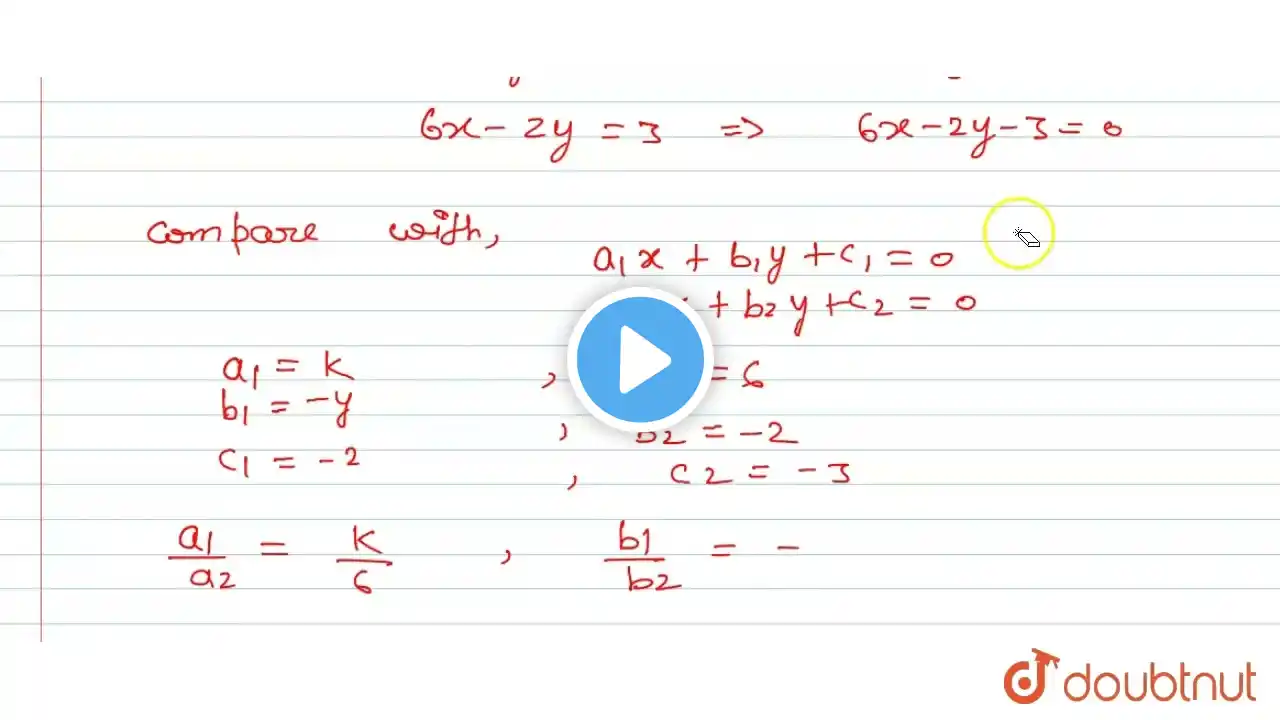 6x - 2y = 3 => 6x - 2y - 3 = 0
compare with,
a1x + b1y + c1 = 0
+ b2y + c2 = 0
a1 = k , = 6
b1 = -y
, b2 = -2
c1 = -2 , c2 = -3
a1/a2 = k/6 , b1/b2 = -
doubtnut